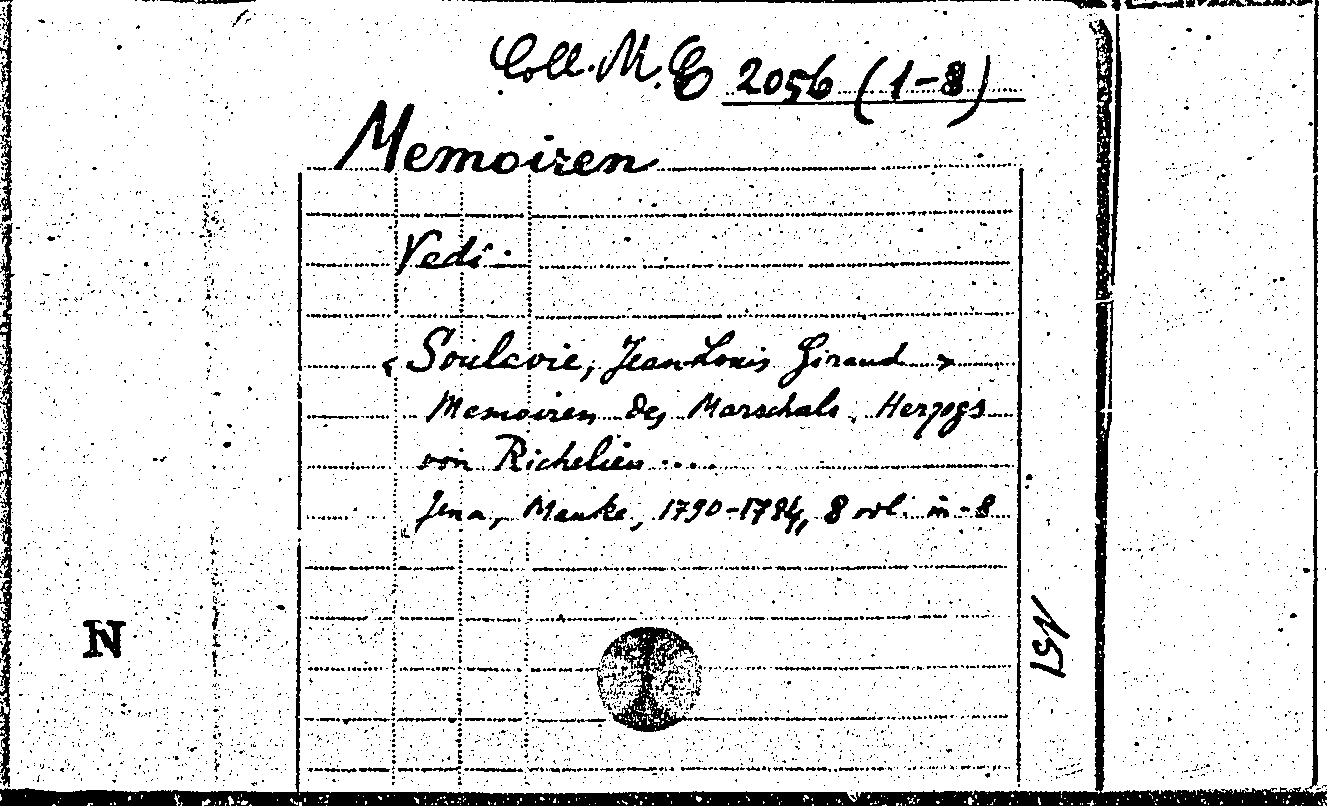 Coll. M. C 2056 (1-8)
Memoiren
Vedi:
< Soulavie, Jean-Louis Giraud >
Memoiren des Marschals, Herzogs
von Richelieu ....
Jena, Mauke, 1790-1794, 8 vol. in-8
N